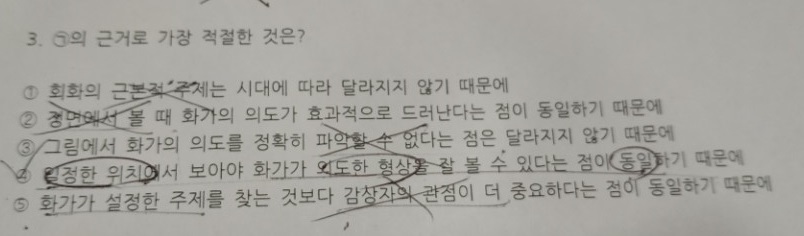 3. ㉠의 근거로 가장 적절한 것은?
① 회화의 근본적 주제는 시대에 따라 달라지지 않기 때문에
② 정면에서 볼 때 화가의 의도가 효과적으로 드러난다는 점이 동일하기 때문에
③ 그림에서 화가의 의도를 정확히 파악할 수 없다는 점은 달라지지 않기 때문에
④ 일정한 위치에서 보아야 화가가 의도한 형상을 잘 볼 수 있다는 점이 동일하기 때문에
⑤ 화가가 설정한 주제를 찾는 것보다 감상자의 관점이 더 중요하다는 점이 동일하기 때문에